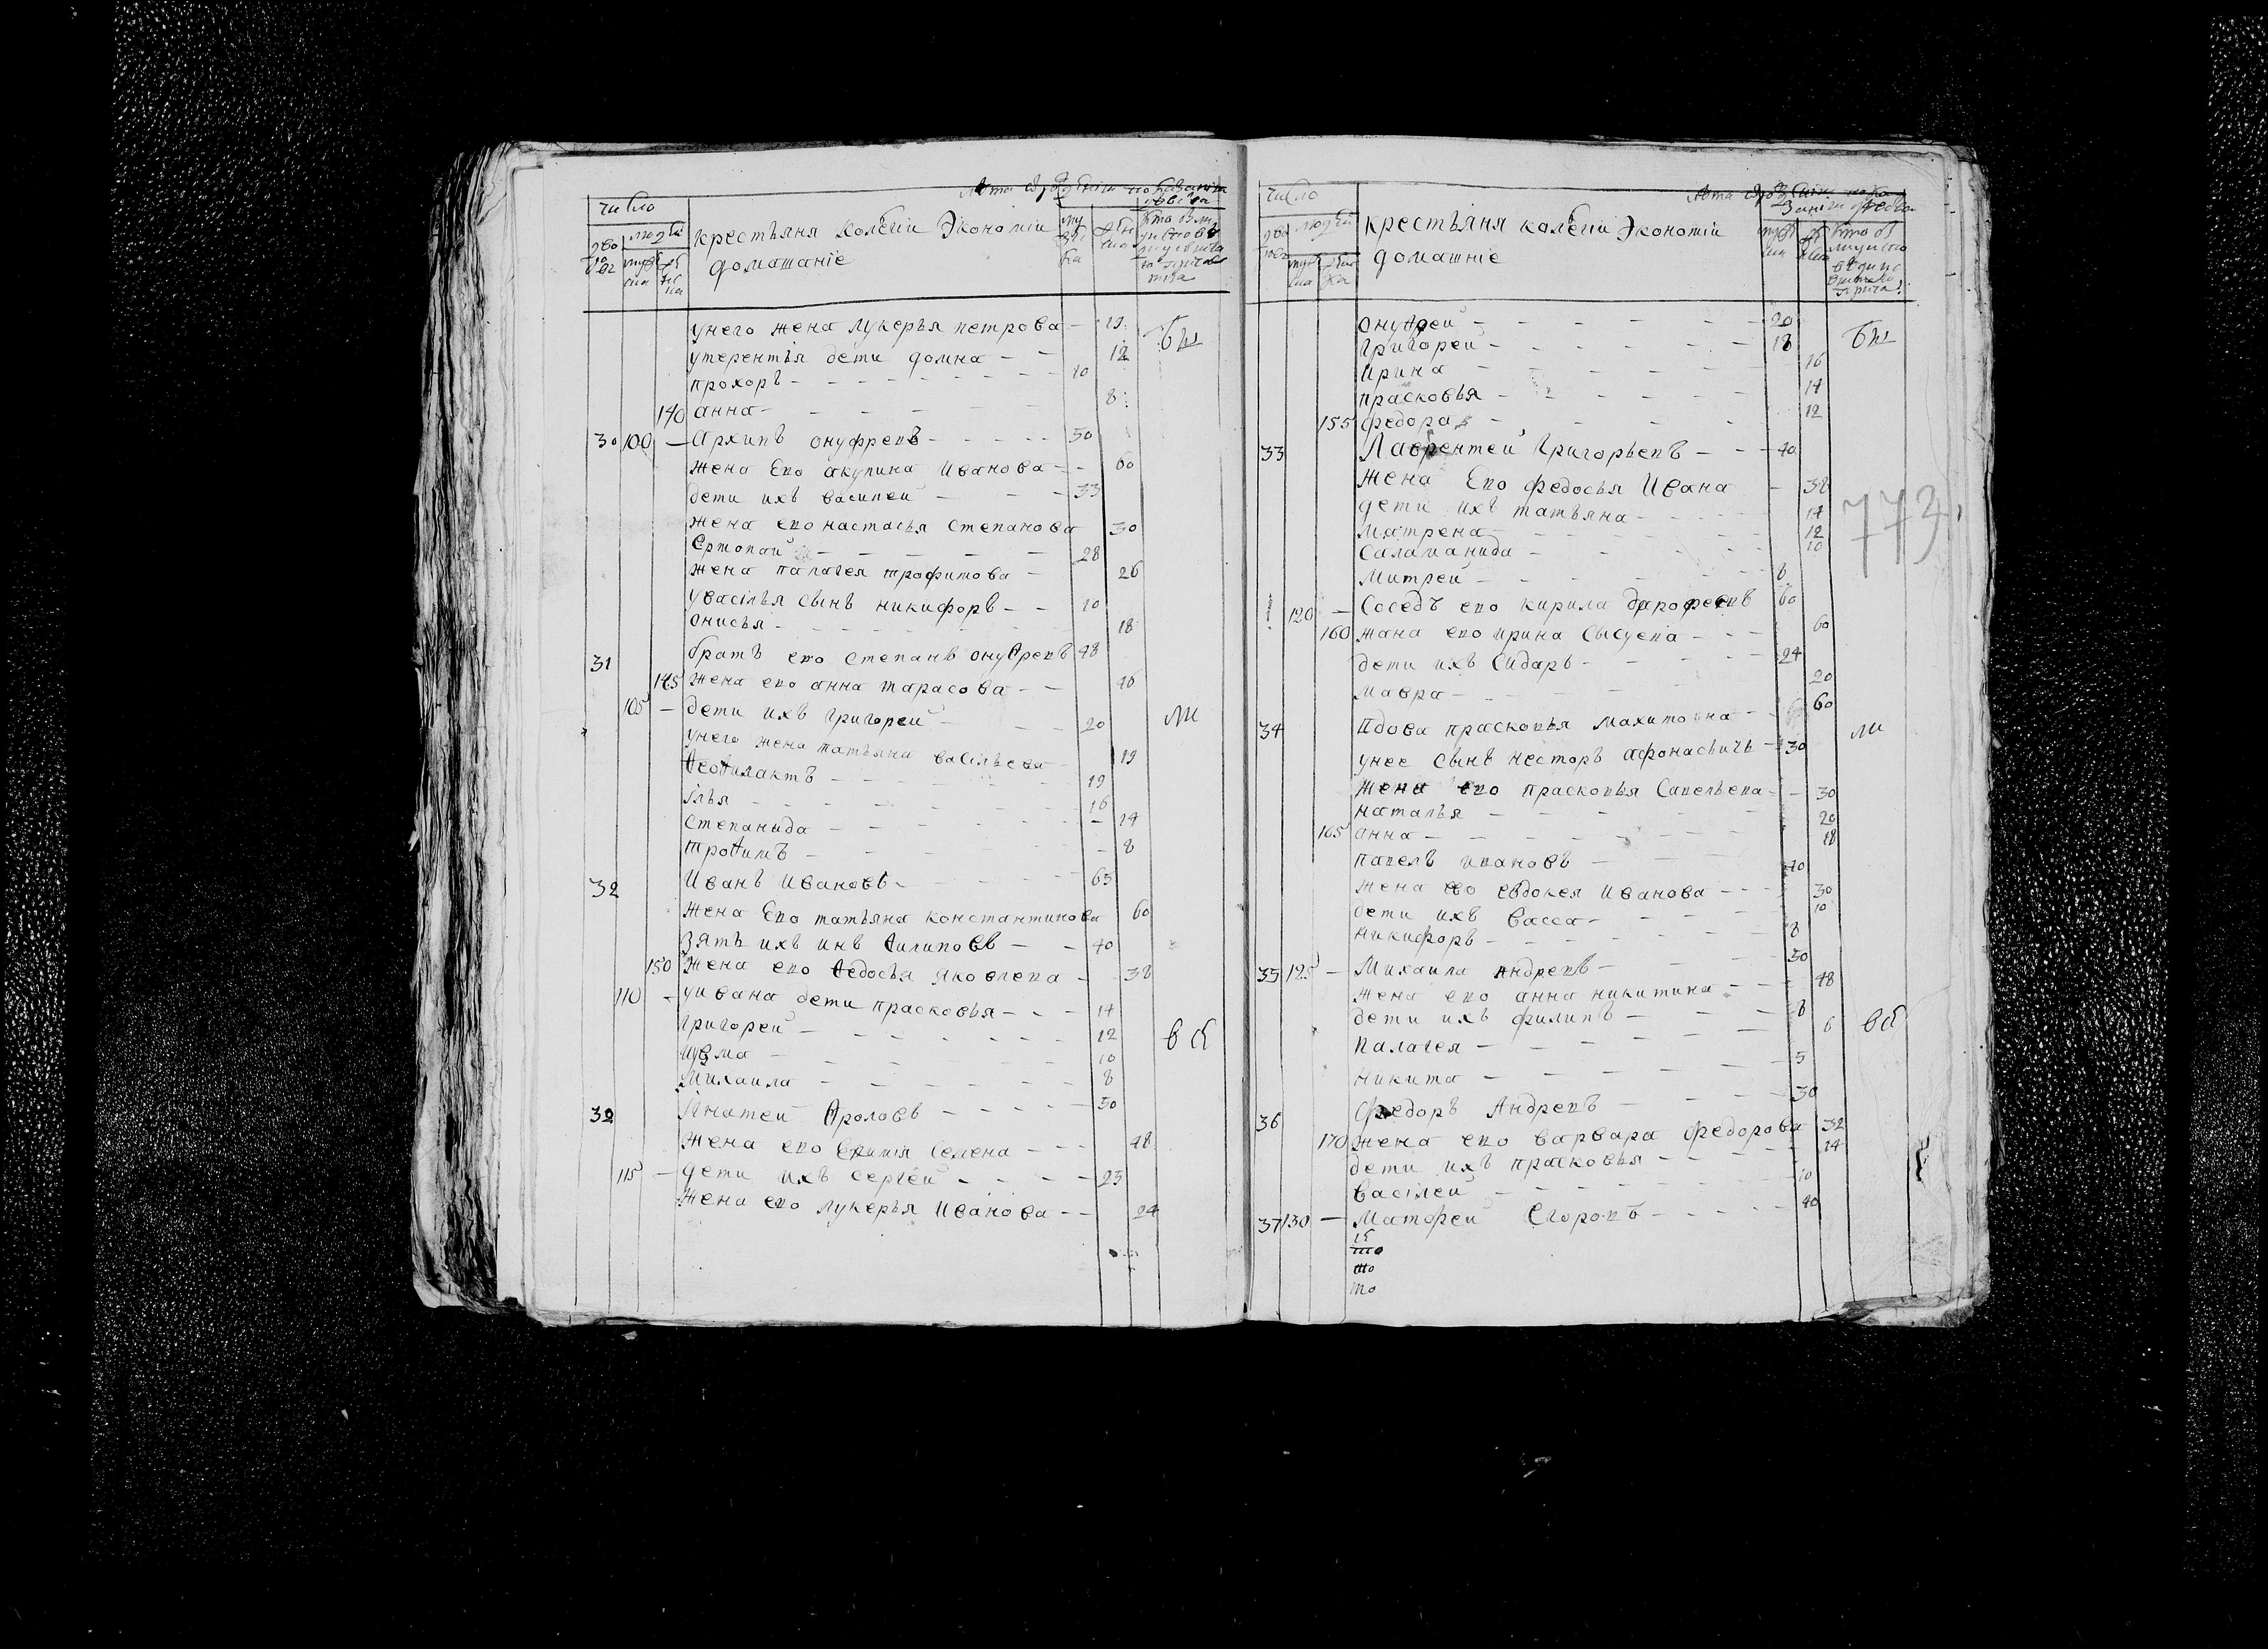 число
людей
крестьяня колегіи Экономіи
домашаніе
унего жена лукерья петрова - 19
бы
утерентія дети домна - - 12
прохоръ - 10
140 анна - 8
30 100 - Архипъ онуфревъ - 50
жена Ево акулина Иванова - - 60
дети ихъ василей - 33
жена ево настасья степанова 30
Ермолай - 28
жена палагея трофимова - 26
увасілья сынъ никифоръ - - 10
онисья - 18
31 братъ ево степанъ онуѳревъ 48
145 жена ево анна тарасова - - 46
105 - дети ихъ григорей - 20
ли
унего жена татьяна васільева 19
ѳеоѳилактъ - 19
ілья - 16
степанида - 14
троѳимъ - 8
32 Иванъ Ивановъ - 65
жена Ево татьяна константинова 60
зять ихъ ѳилиповъ - - 40
150 жена ево ѳедосья яковлева - 38
110 - уивана дети прасковья - - 14
григорей - 12
всѣ
кузма - 10
Михаила - 8
32 Ігнатей ѳроловъ - 50
жена ево семена - - 48
115 - дети ихъ сергей - 25
жена ево лукерья Иванова - - 24
число
людей
крестьяня колегіи Экономіи
домашніе
онуѳрей - 20
бы
григорей - 18
ирина - 16
прасковья - 14
155 федора - 12
33 Лаврентей григорьевъ - 40
жена Ево федосья Ивана - 38
773
дети ихъ татьяна - 14
матрена - 12
саламанида - 10
митрей - 8
120 - соседъ ево кирила 60
160 жана ево ирина сысуева - 60
дети ихъ сидаръ - 24
мавра - 20
34 вдова прасковья 60
ли
унее сынъ несторъ афонасьичь - 30
жена ево прасковья савельева - 30
наталья - 20
165 анна - 18
павелъ ивановъ - 40
жена ево евдокея иванова - 30
дети ихъ васса - 10
никифоръ - 8
35 125 - Михаила андревъ - 50
жена ево анна никитина - 48
дети ихъ филипъ - 8
палагея - 6
всѣ
никита - 5
36 федоръ Андревъ - 30
170 жена ево варвара федорова 32
дети ихъ прасковья - 14
васілей - 10
37 130 - Матфей Егоровъ - 40
то
то